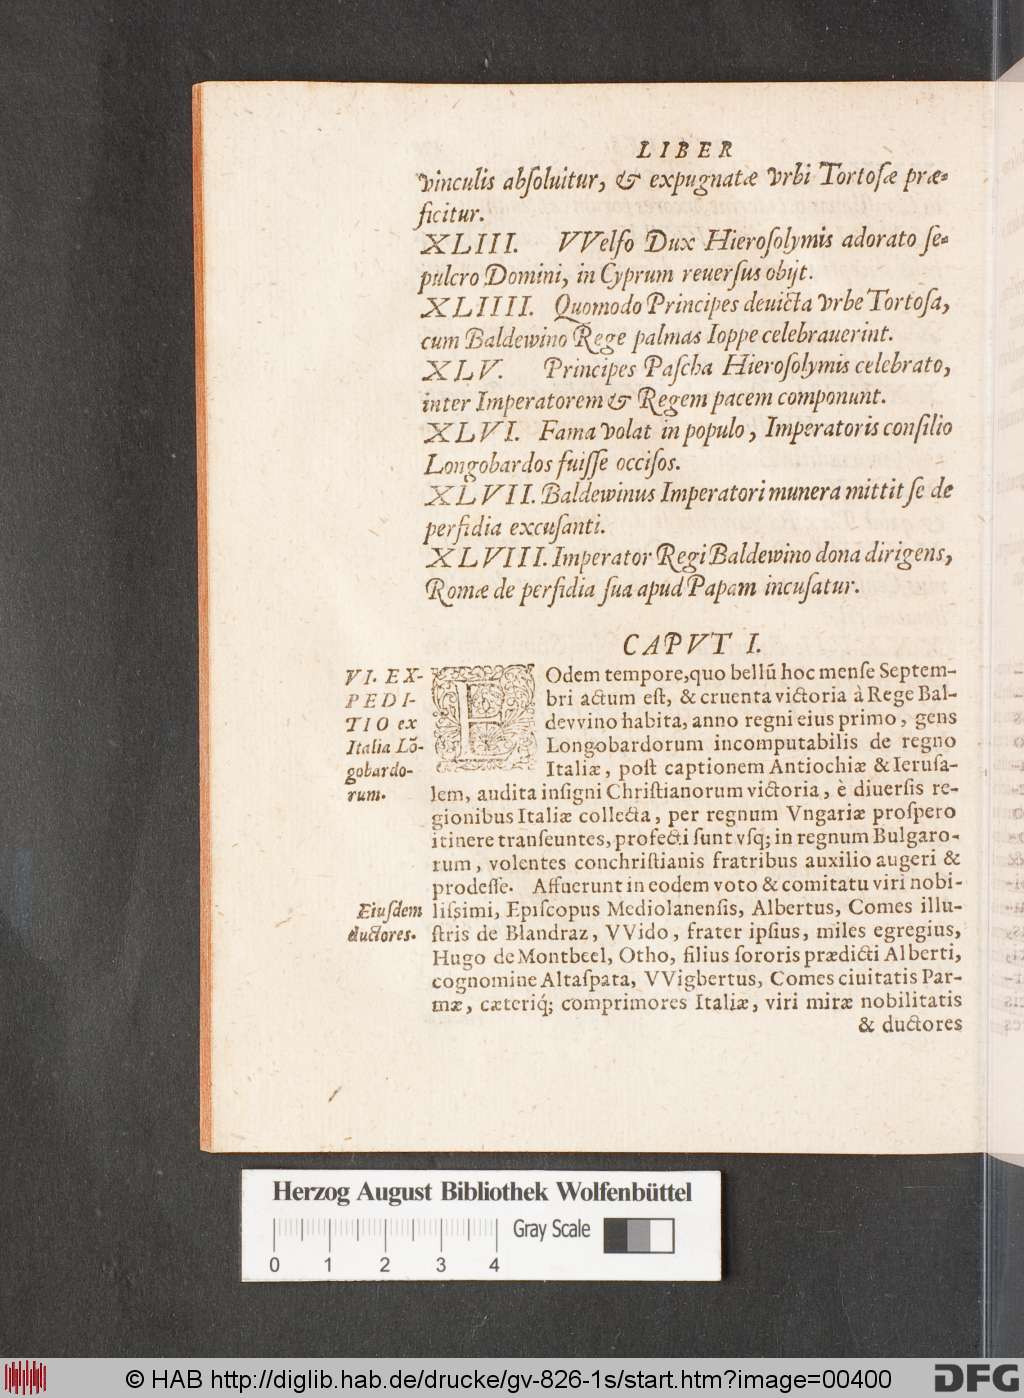 LIBER
vinculis absoluitur, & expugnatæ vrbi Tortosæ præ-
ficitur.
XLIII. VVelfo Dux Hierosolymis adorato se-
pulcro Domini, in Cyprum reuersus obijt.
XLIIII. Quomodo Principes deuicta vrbe Tortosa,
cum Baldewino Rege palmas Ioppe celebrauerint.
XLV. Principes Pascha Hierosolymis celebrato,
inter Imperatorem & Regem pacem componunt.
XLVI. Fama volat in populo, Imperatoris consilio
Longobardos fuisse occisos.
XLVII. Baldewinus Imperatori munera mittit se de
perfidia excusanti.
XLVIII. Imperator Regi Baldewino dona dirigens,
Romæ de perfidia sua apud Papam incusatur.
CAPVT I.
VI. EX-
PEDI-
TIO ex
Italia Lõ-
gobardo-
rum.
EOdem tempore, quo bellũ hoc mense Septem-
bri actum est, & cruenta victoria à Rege Bal-
devvino habita, anno regni eius primo, gens
Longobardorum incomputabilis de regno
Italiæ, post captionem Antiochiæ & Ierusa-
lem, audita insigni Christianorum victoria, è diuersis re-
gionibus Italiæ collecta, per regnum Vngariæ prospero
itinere transeuntes, profecti sunt vsq; in regnum Bulgaro-
rum, volentes conchristianis fratribus auxilio augeri &
prodesse. Affuerunt in eodem voto & comitatu viri nobi-
Eiusdem
ductores.
lissimi, Episcopus Mediolanensis, Albertus, Comes illu-
stris de Blandraz, VVido, frater ipsius, miles egregius,
Hugo de Montbeel, Otho, filius sororis prædicti Alberti,
cognomine Altaspata, VVigbertus, Comes ciuitatis Par-
mæ, cæteriq́; comprimores Italiæ, viri miræ nobilitatis
& ductores
Herzog August Bibliothek Wolfenbüttel
Gray Scale
0 1 2 3 4
© HAB http://diglib.hab.de/drucke/gv-826-1s/start.htm?image=00400
DFG